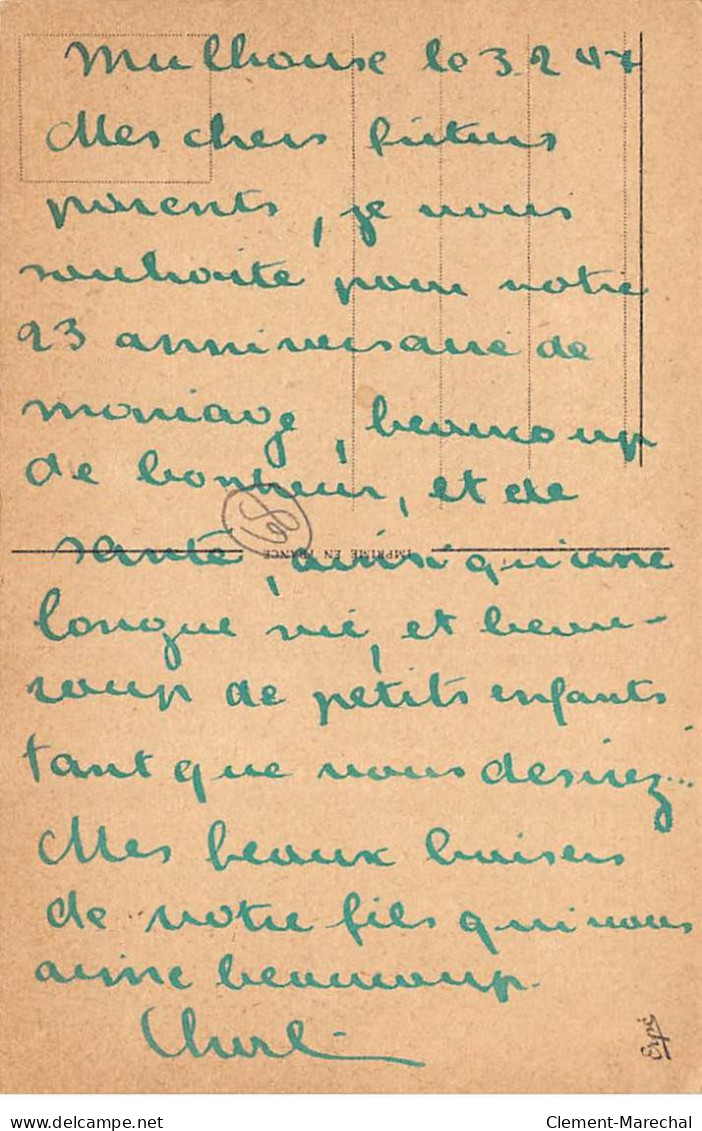 Mulhouse le 3.2 47
Mes chers futurs
parents, je vous
souhaite pour votre
23 anniversaire de
mariage, beaucoup
de bonheur, et de
santé, ainsi qu'une
longue vie, et beau-
coup de petits enfants
tant que vous desirez...
Mes beaux baisers
de votre fils qui vous
aime beaucoup.
68
IMPRIMÉ EN FRANCE
Erpé
delcampe.net
Clement-Marechal